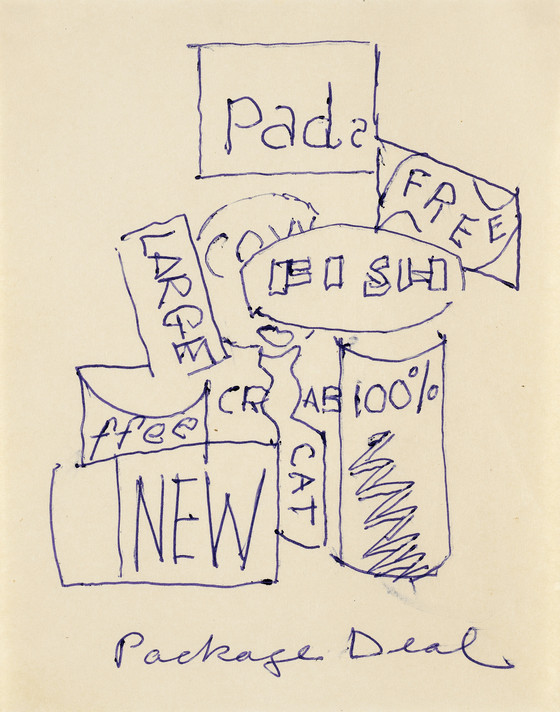 Pads
FREE
COW
FISH
LARGE
CR AB
100%
ffee
CAT
NEW
Package Deal